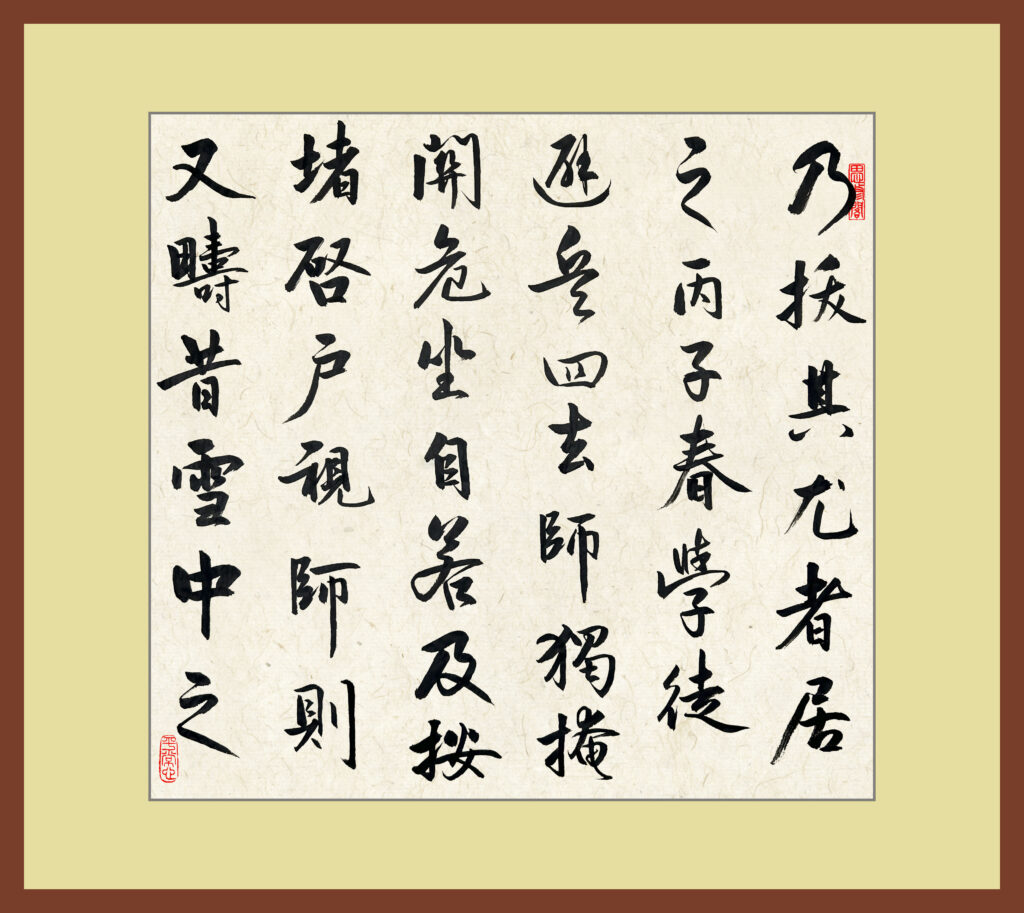 乃拔其尤者居
之丙子春學徒
避兵四去師獨掩
關危坐自若及按
堵啓戶視師則
又疇昔雪中之
平常心